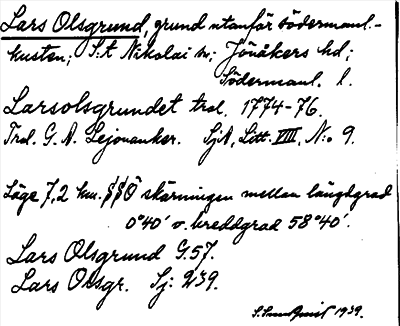 Lars Olsgrund, grund utanför Södermanl.-
kusten; S:t Nikolai sn; Jönåkers hd;
Södermanl. l.
Larsolsgrundet trol. 1774-76.
Trol. G. A. Lejonanker. SjA, Litt. VIII, N:o 9.
Läge 7,2 km. SSÖ skärningen mellan längdgrad
0°40' v. breddgrad 58°40'.
Lars Olsgrund G.57.
Lars Olsgr. Sj: 239.
S. Sundqvist 1939.